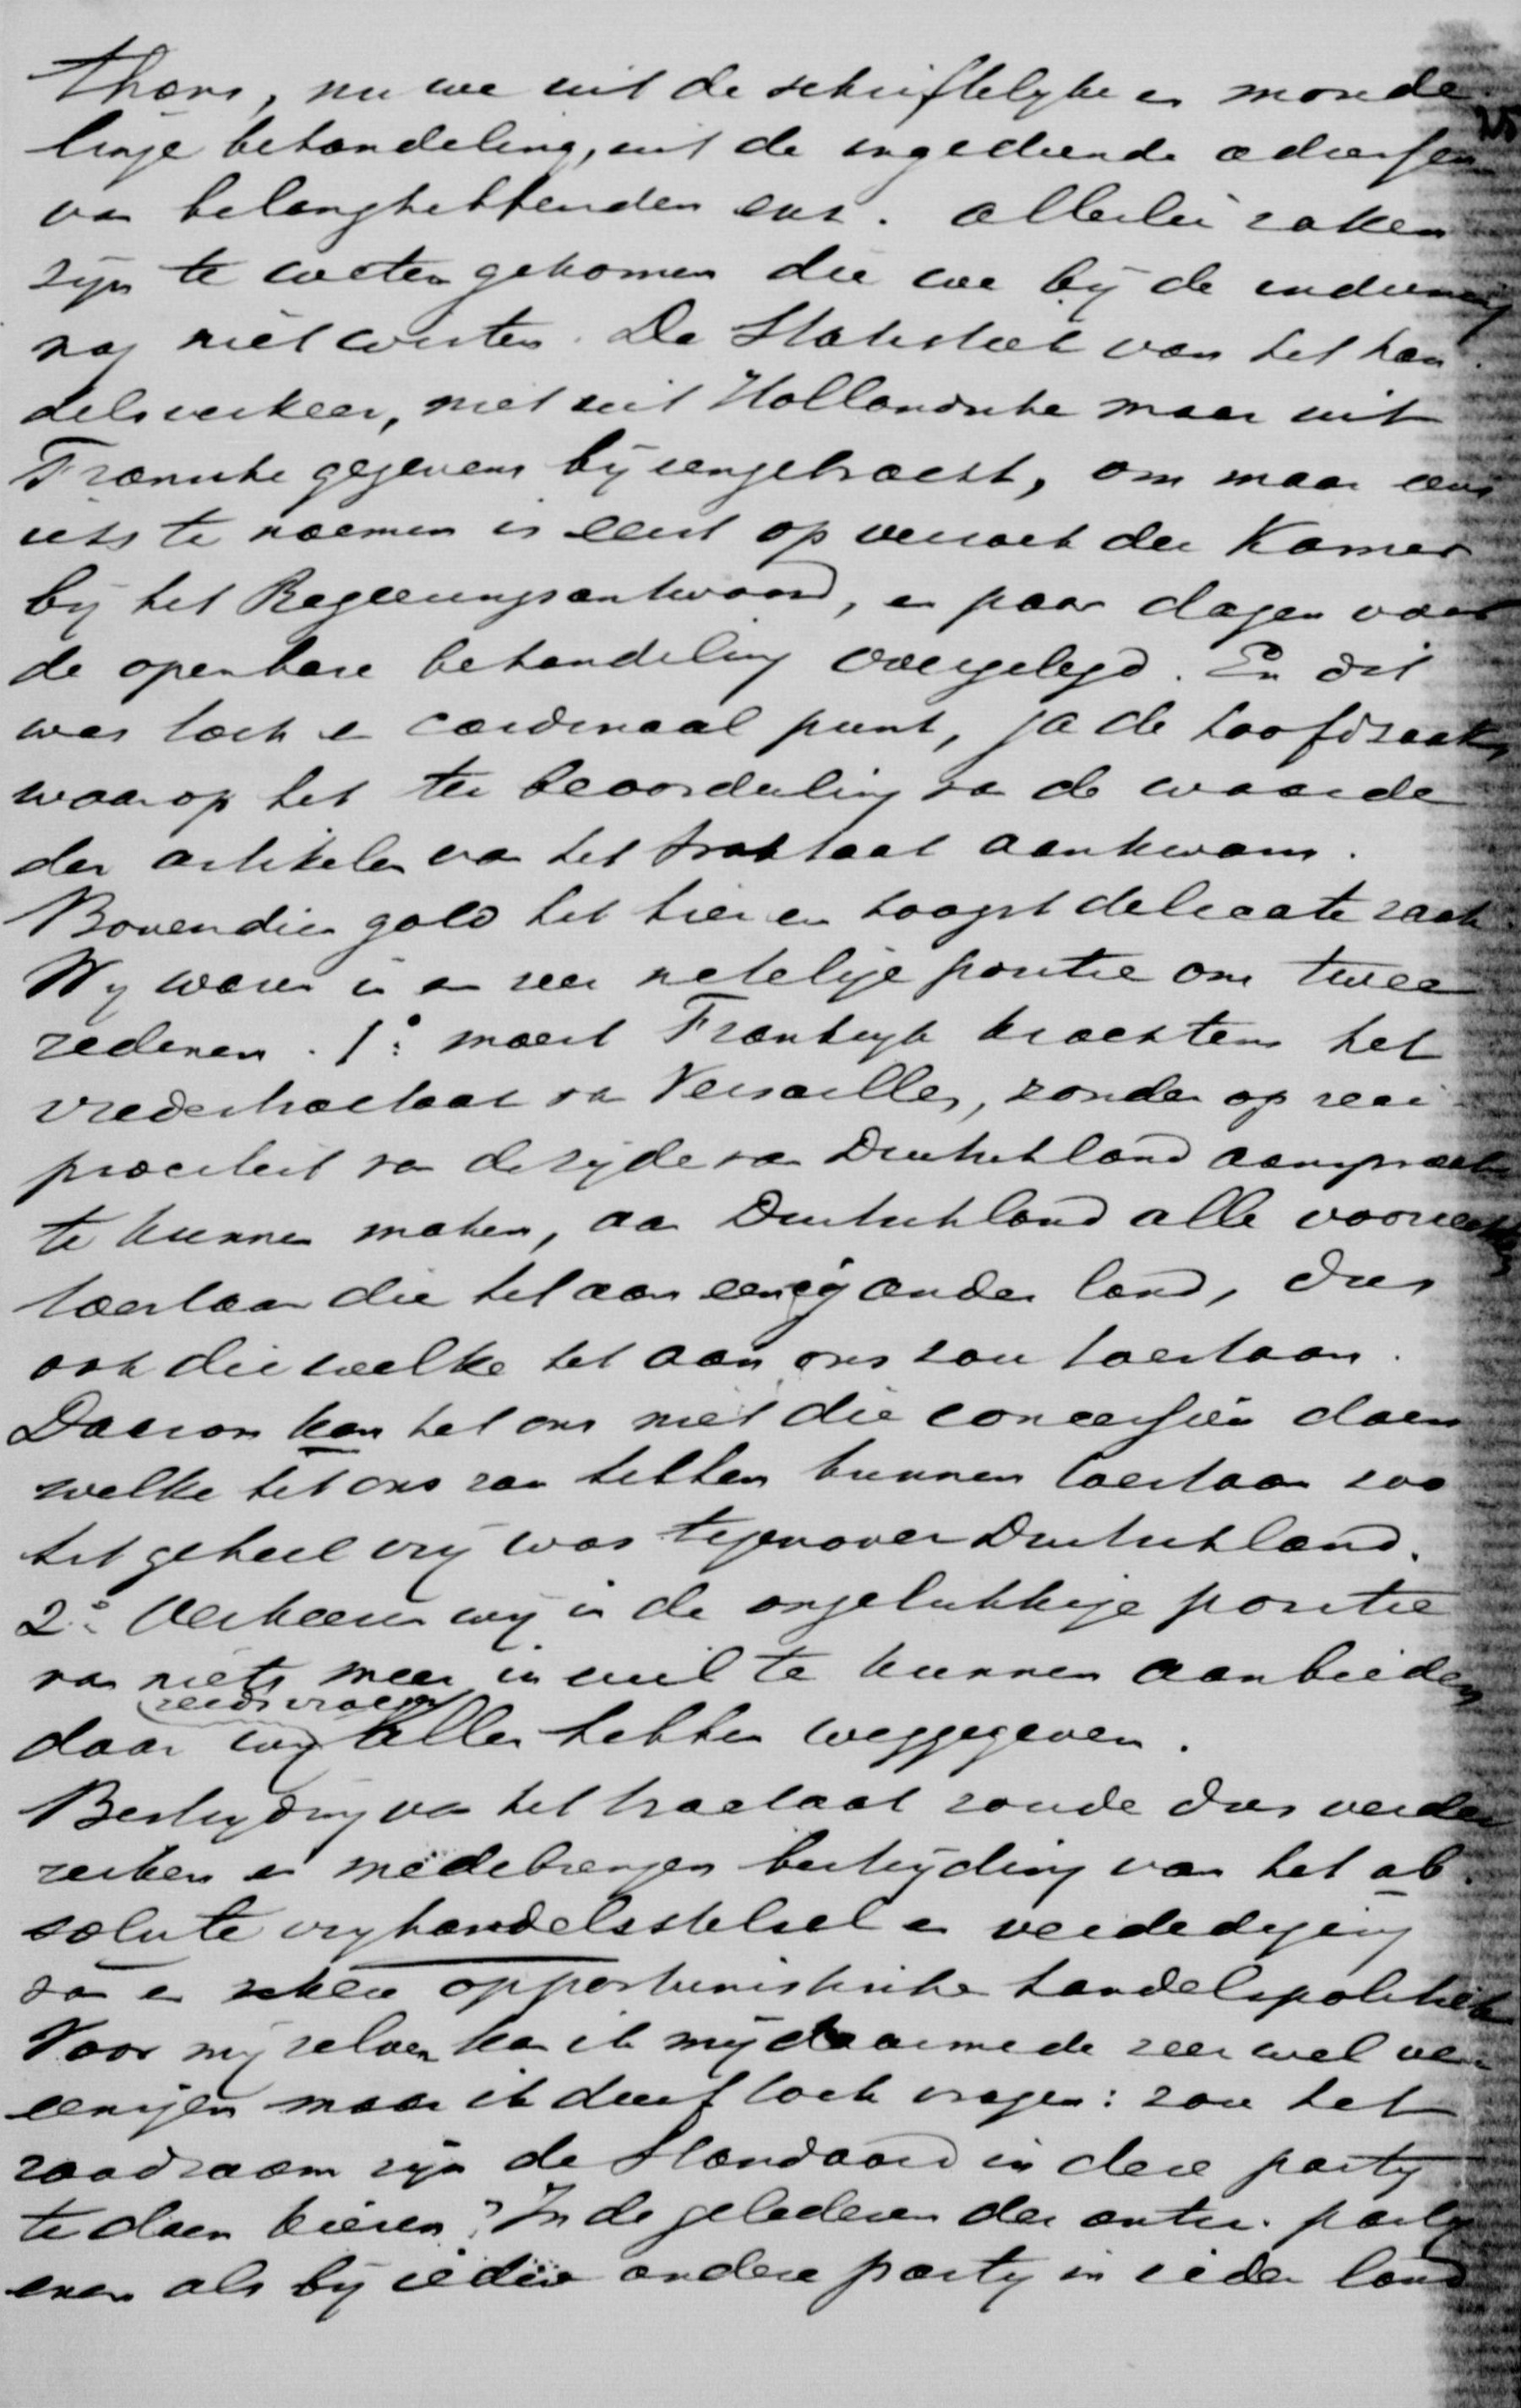 thans, nu we uit de schriftelyke en monde-
linge behandeling, uit de ingediende adressen
van belanghebbenden enz. allerlei zaken
zijn te weten gekomen die we bij de indiening
nog niet wisten. De Statistiek van het han-
delsverkeer, niet uit Hollandsche maar uit
Fransche gegevens bijeengebracht, om maar eens
iets te noemen is eerst op verzoek der Kamer
bij het Regeeringsantwoord, en paar dagen voor
de openbare behandeling overgelegd. En dit
was toch e cardinaal punt, ja de hoofdzaak,
waarop het ter beoordeeling van de waarde
der artikelen van het traktaat aankwam.
Bovendien gold het hier en hoogst delicaate zaak.
Wy waren in en zeer netelige positie om twee
redenen. 1°: moest Frankryk krachtens het
vredestractaat van Versailles, zonder op reci-
prociteit van de zijde van Duitschland aanspraak
te kunnen maken, aan Duitschland alle voorrechten
toestaan die het aan eenig ander land, dus
ook die welke het aan ons zou toestaan.
Daarom kan het ons niet die concessiën doen
welke het ons zou hebben kunnen toestaan zoo
het geheel vrij was tegenover Duitschland.
2°: Verkeeren wij in de ongelukkige positie
van niets meer in ruil te kunnen aanbieden
reeds vroeger
daar wy alles hebben weggegeven.
Bestryding van het tractaat zoude dus verder
reiken en medebrengen bestrijding van het ab-
solute vryhandelsstelsel en verdediging
van e zekere opportunistische handelspolitiek
Voor mij zelven kan ik mij daarmede zeer wel ver-
eenigen maar ik durf toch vragen: zou het
raadzaam zijn de Standaard in deze party
te doen kiezen? In de gelederen der antir. party
even als bij iedere andere party in ieder land